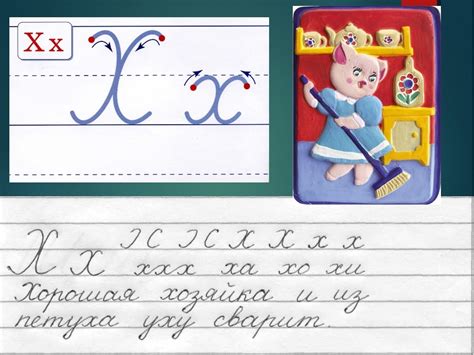 Х х
Х х
Э С Э С Х Х х х
Х х ххх ха хо хи
Хорошая хозяйка и из
петуха уху сварит.